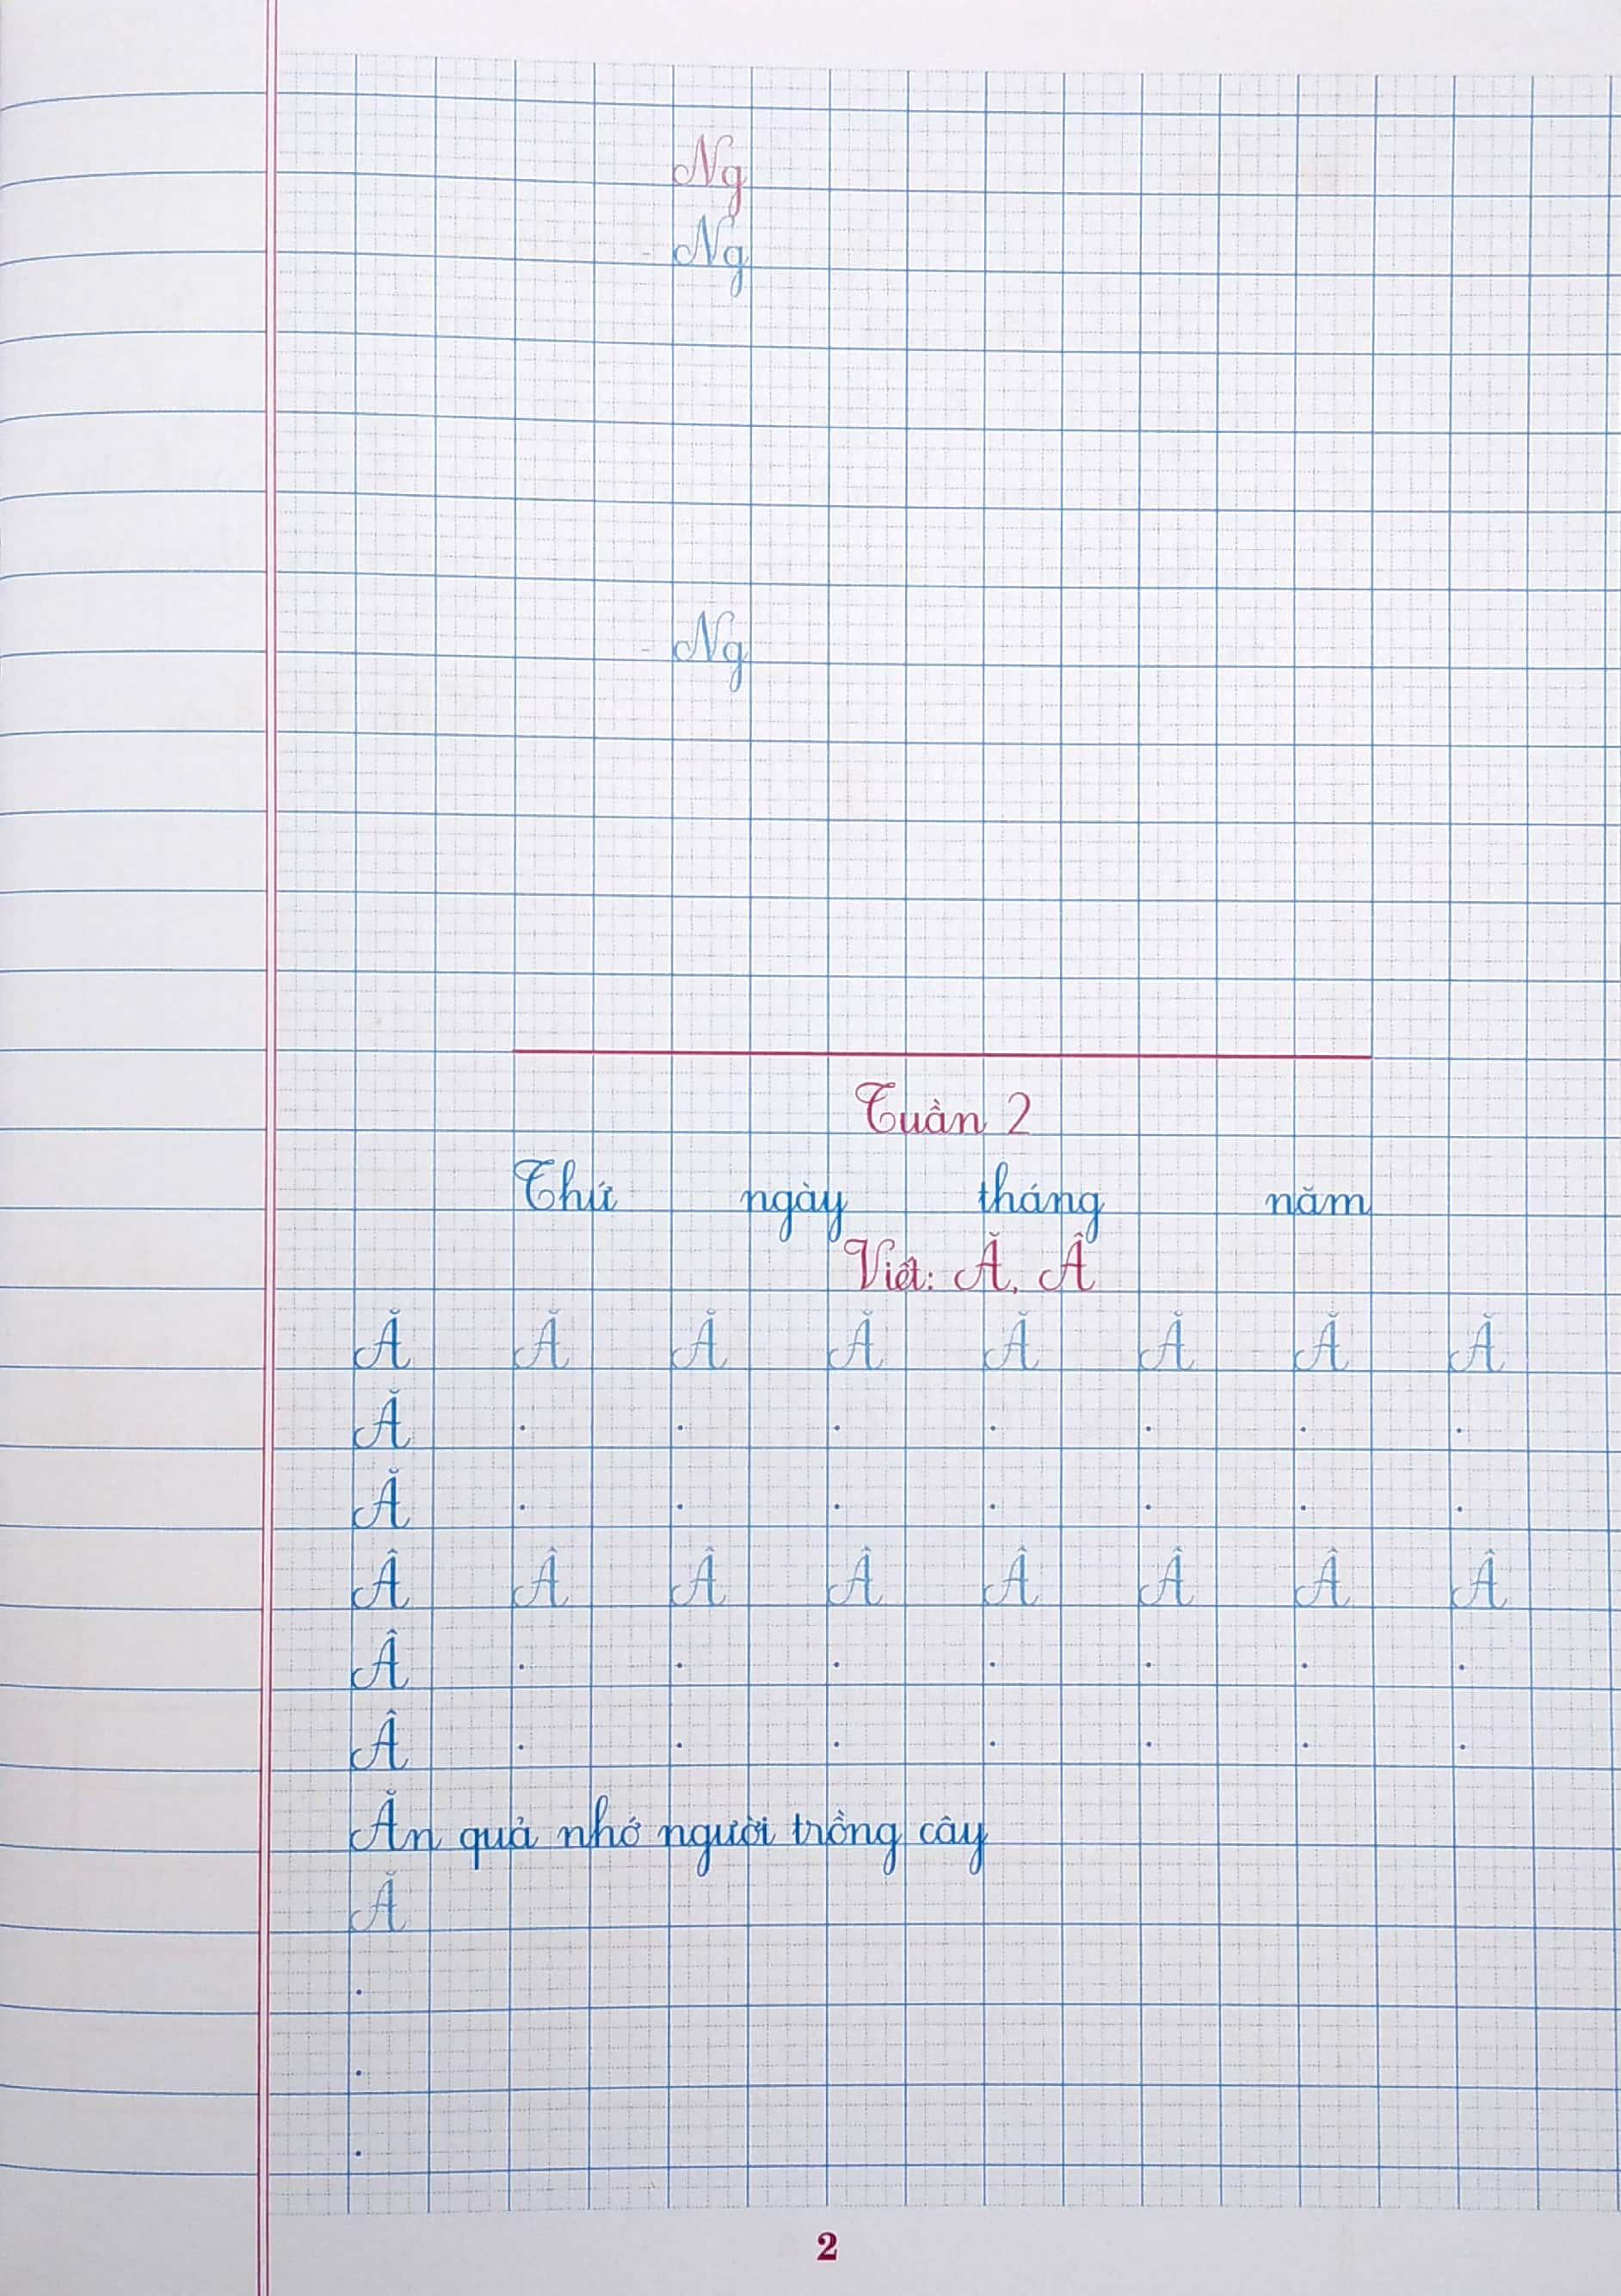 Ng
- Ng
- Ng
Tuần 2
Thứ ngày tháng năm
Viết: Ă, Â
Ă Ă Ă Ă Ă Ă Ă Ă
Ă . . . . . . .
Ă . . . . . . .
Â Â Â Â Â Â Â Â
Â . . . . . . .
Â . . . . . . .
Ăn quả nhớ người trồng cây
Ă
.
.
.
2